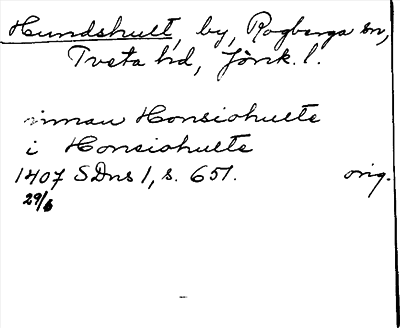 Hundshult, by, Rogberga sn,
Tveta hd, Jönk. l.
innan Honsiohulte
i Honsiohulte
1407 SDns 1, s. 651. orig.
29/6